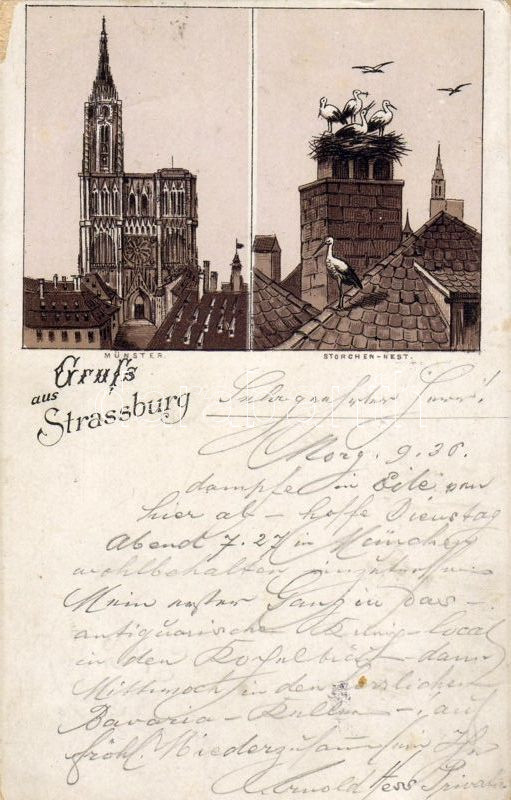 MÜNSTER.
STORCHEN-NEST.
Gruß
aus
Strassburg
Sehr geehrter Herr!
Morg. 9.30.
dampfe in Eile von
hier ab – hoffe Dienstag
Abend 7.27 in München
wohlbehalten
Mein erster Gang in das –
antiquarische Local
in den – dann
Mittwoch in den
Bavaria – Keller – auf
fröhl. Wiederzusammen
Arnold Hess Privatier